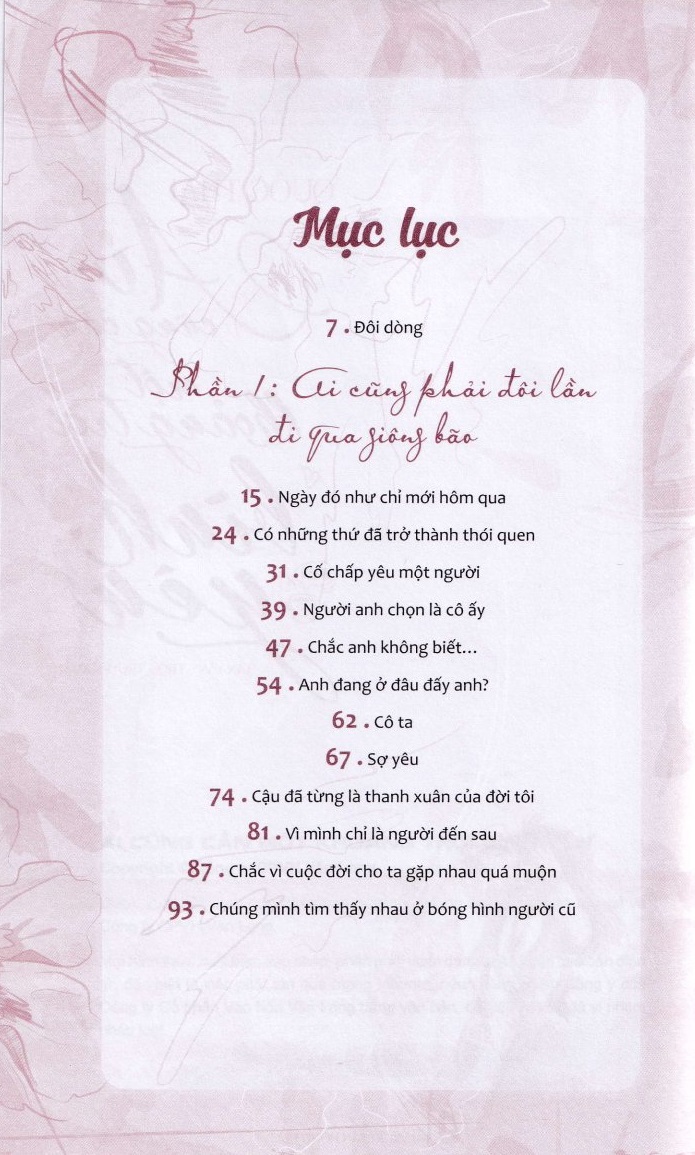 Mục lục
7 . Đôi dòng
Phần 1: Ai cũng phải đôi lần
đi qua giông bão
15 . Ngày đó như chỉ mới hôm qua
24 . Có những thứ đã trở thành thói quen
31 . Cố chấp yêu một người
39 . Người anh chọn là cô ấy
47 . Chắc anh không biết...
54 . Anh đang ở đâu đấy anh?
62 . Cô ta
67 . Sợ yêu
74 . Cậu đã từng là thanh xuân của đời tôi
81 . Vì mình chỉ là người đến sau
87 . Chắc vì cuộc đời cho ta gặp nhau quá muộn
93 . Chúng mình tìm thấy nhau ở bóng hình người cũ